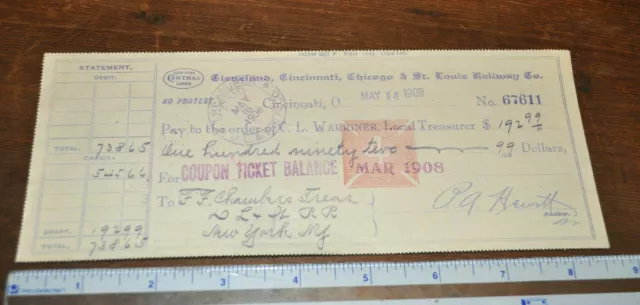 STATEMENT,
DEBIT:
TOTAL, 738 65
CREDIT:
545 66
DRAFT, 192 99
TOTAL, 738 65
NEW YORK
CENTRAL
LINES
Cleveland, Cincinnati, Chicago & St. Louis Railway Co.
NO PROTEST.
Cincinnati, O. MAY 14 1908 No. 67611
Pay to the order of C. L. WARRINER, Local Treasurer $ 192 99
One hundred ninety two 99 Dollars,
For COUPON TICKET BALANCE MAR 1908
To F. F. Chambers Treas
D L & W R R
New York NY
P A Hewitt